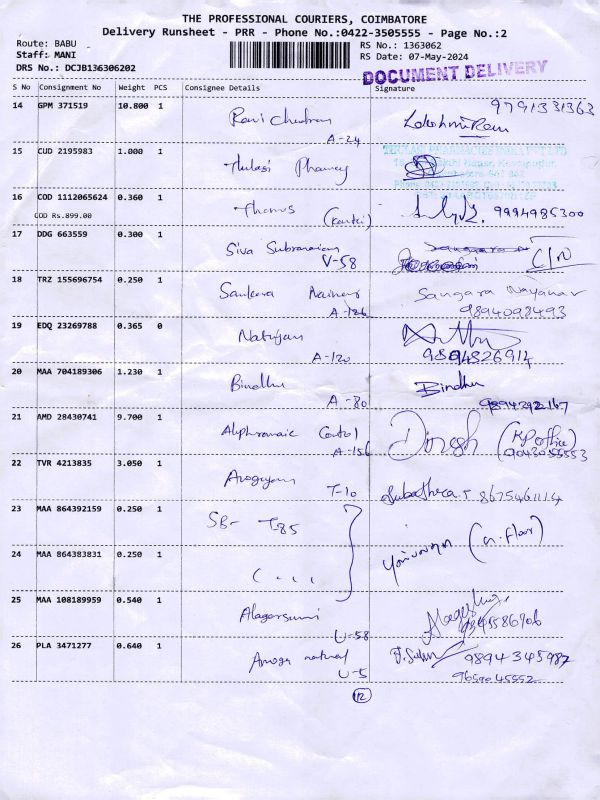 THE PROFESSIONAL COURIERS, COIMBATORE
Delivery Runsheet - PRR - Phone No.:0422-3505555 - Page No.:2
Route: BABU
Staff: MANI
DRS No.: DCJB136306202
RS No.: 1363062
RS Date: 07-May-2024
DOCUMENT DELIVERY
S No Consignment No Weight PCS Consignee Details Signature
14 GPM 371519 10.800 1 Ravi Chandran A-24 9791331363
15 CUD 2195983 1.000 1 Thulasi Pharmacy
16 COD 1112065624 0.360 1 Thomas 9994985300
COD Rs.899.00
17 DDG 663559 0.300 1 Siva Subramaniam V-58
18 TRZ 155696754 0.250 1 Sankara A-126 Sangara Nayanar
9894098493
19 EDQ 23269788 0.365 0 Natrajan A-120
9894826914
20 MAA 704189306 1.230 1 Bindhu A-80 Bindhu
21 AMD 28430741 9.700 1 Control A-156 Dinesh (KP office)
9043055553
22 TVR 4213835 3.050 1 T-10 8675461114
23 MAA 864392159 0.250 1 SB- T-85
24 MAA 864383831 0.250 1 (G. Floor)
25 MAA 108189959 0.540 1 Alagarsami U-58
26 PLA 3471277 0.640 1 Amoga natural U-5 9894345987
9659045552
12